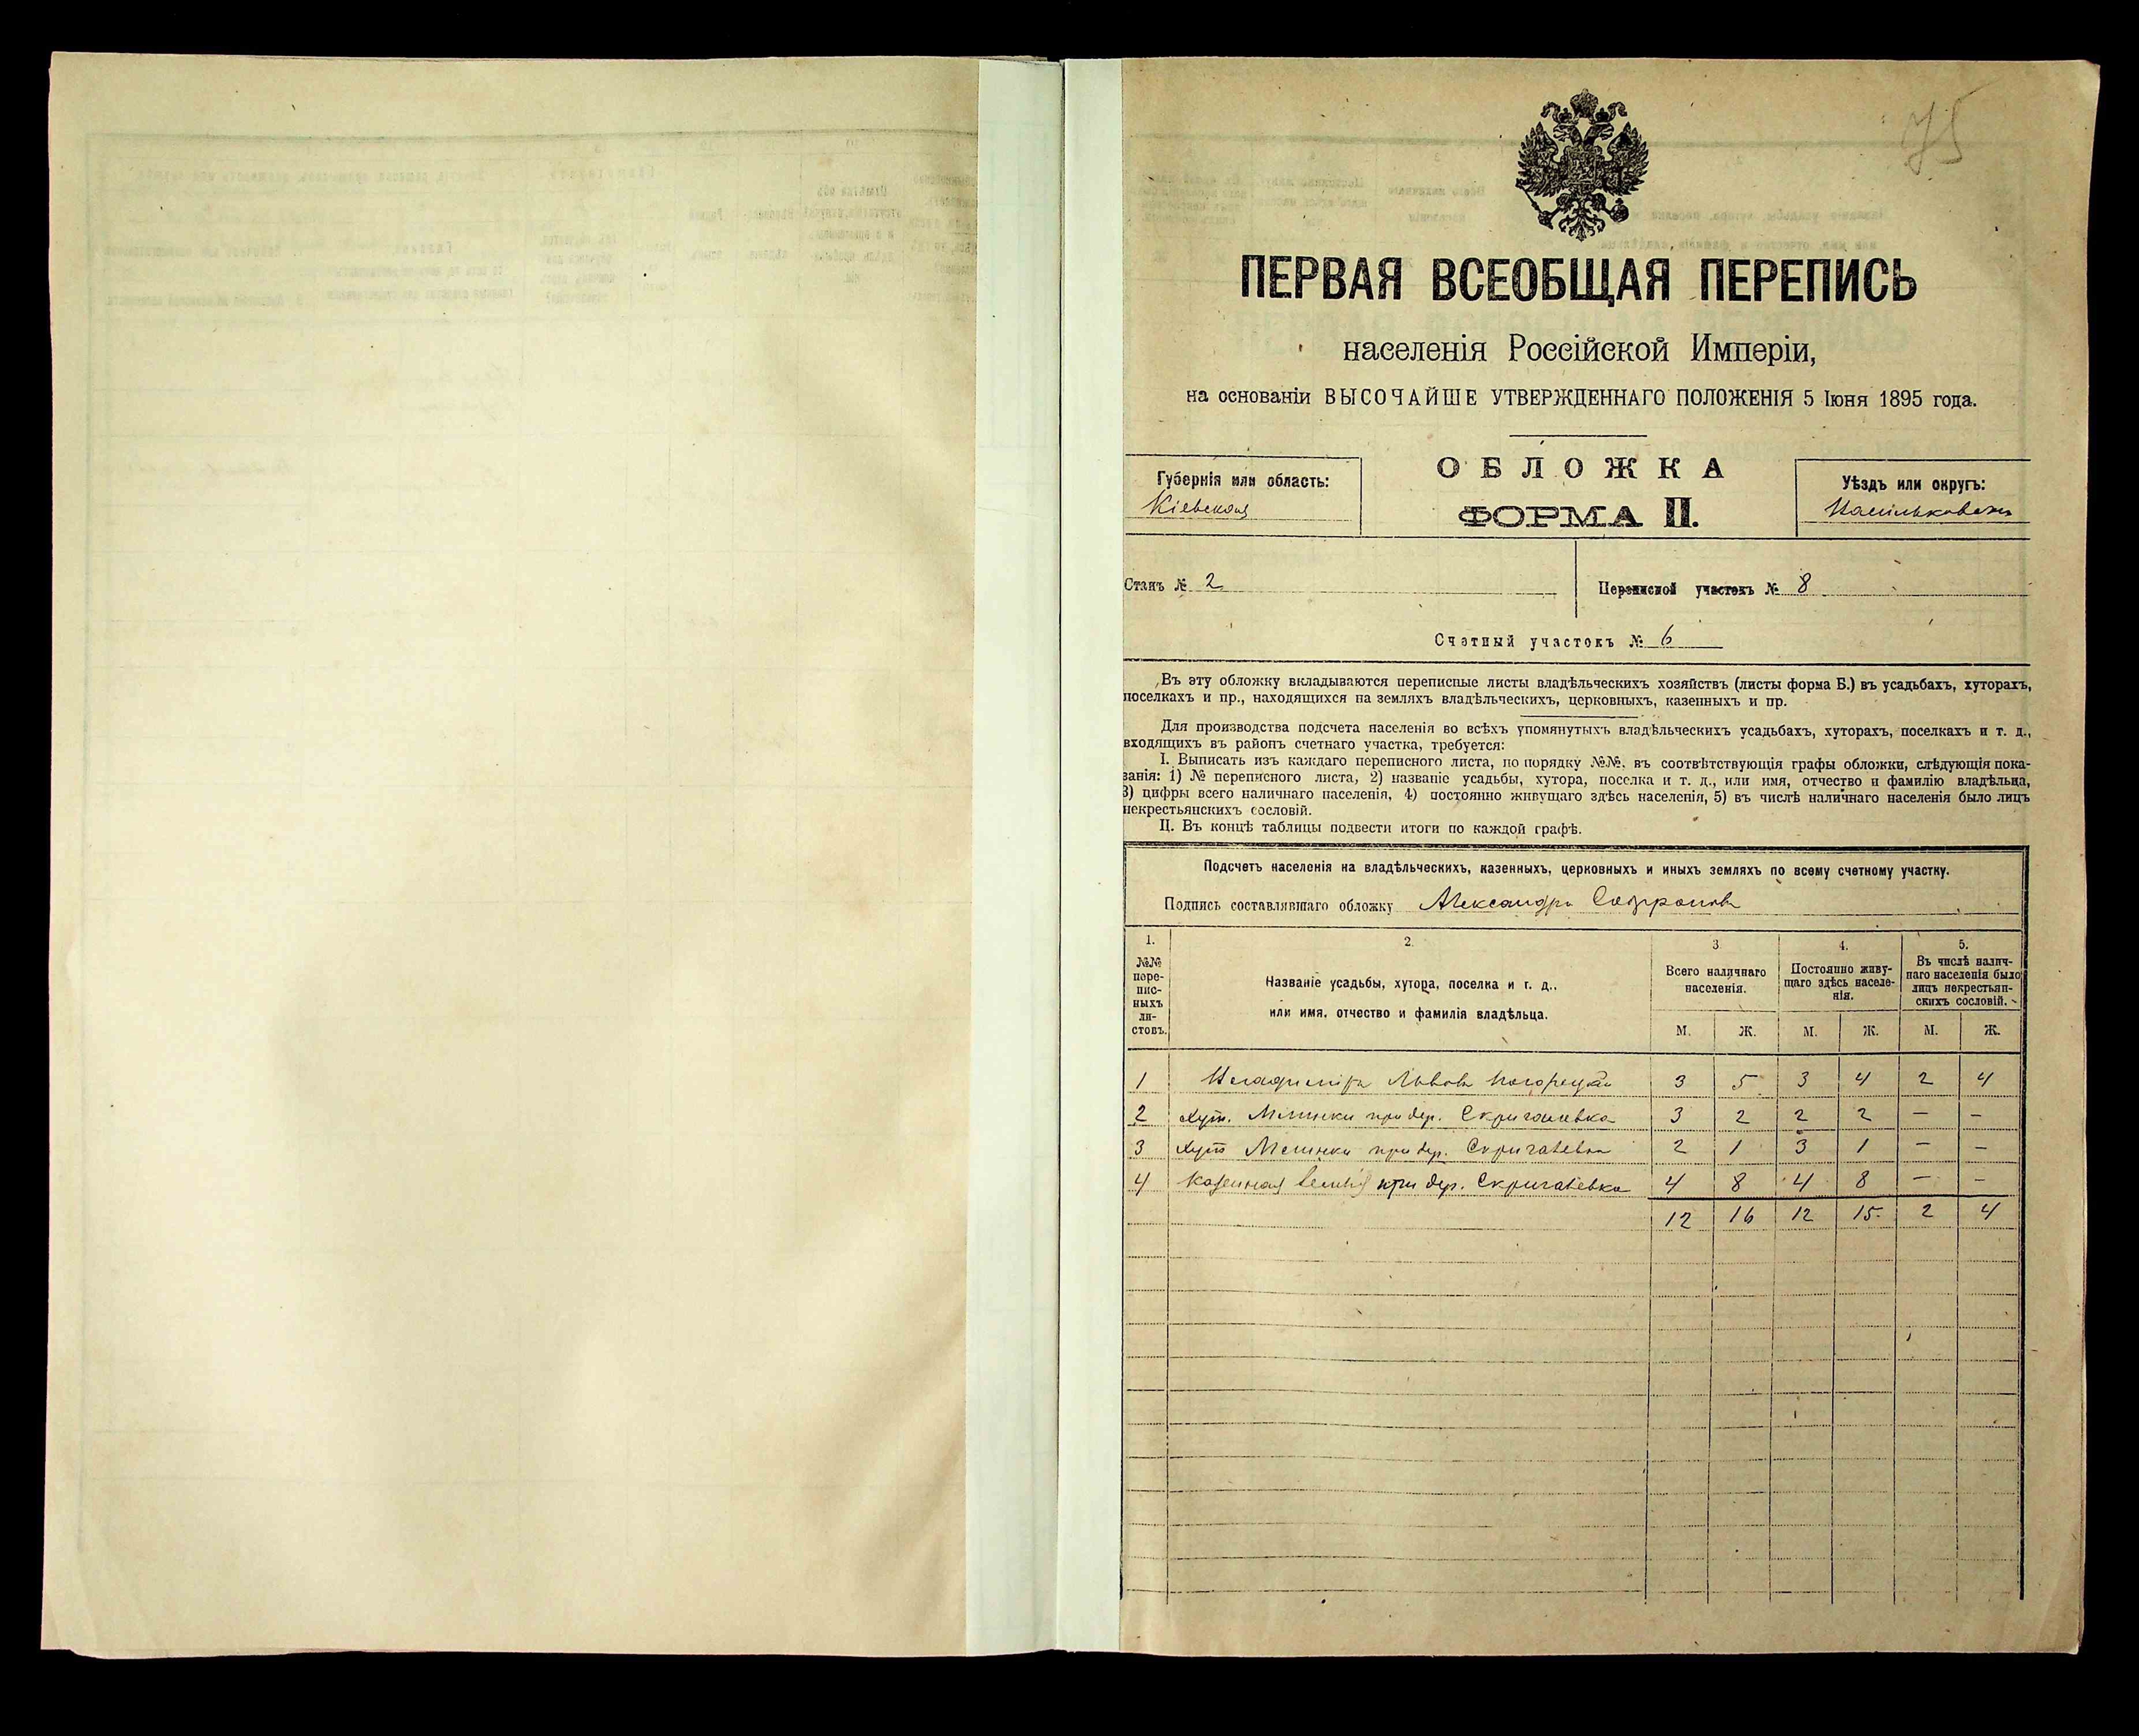 75
ПЕРВАЯ ВСЕОБЩАЯ ПЕРЕПИСЬ
населенія Россійской Имперіи,
на основаніи ВЫСОЧАЙШЕ УТВЕРЖДЕННАГО ПОЛОЖЕНІЯ 5 Іюня 1895 года.
ОБЛОЖКА
ФОРМА II.
Губернія или область:
Кіевская
Уѣздъ или округъ:
Станъ № 2
Переписной участокъ № 8
Счетный участокъ № 6
Въ эту обложку вкладываются переписные листы владѣльческихъ хозяйствъ (листы форма Б.) въ усадьбахъ, хуторахъ,
поселкахъ и пр., находящихся на земляхъ владѣльческихъ, церковныхъ, казенныхъ и пр.
Для производства подсчета населенія во всѣхъ упомянутыхъ владѣльческихъ усадьбахъ, хуторахъ, поселкахъ и т. д.,
входящихъ въ районъ счетнаго участка, требуется:
I. Выписать изъ каждаго переписного листа, по порядку №№, въ соотвѣтствующія графы обложки, слѣдующія пока-
занія: 1) № переписного листа, 2) названіе усадьбы, хутора, поселка и т. д., или имя, отчество и фамилію владѣльца,
3) цифры всего наличнаго населенія, 4) постоянно живущаго здѣсь населенія, 5) въ числѣ наличнаго населенія было лицъ
некрестьянскихъ сословій.
II. Въ концѣ таблицы подвести итоги по каждой графѣ.
Подсчетъ населенія на владѣльческихъ, казенныхъ, церковныхъ и иныхъ земляхъ по всему счетному участку.
Подпись составлявшаго обложку Александръ
1. 2. 3. 4. 5.
№№ пере-писныхъ ли-стовъ.
Названіе усадьбы, хутора, поселка и т. д.,
или имя, отчество и фамилія владѣльца.
Всего наличнаго населенія.
Постоянно живу-щаго здѣсь населе-нія.
Въ числѣ налич-наго населенія было лицъ некрестьян-скихъ сословій.
М. Ж. М. Ж. М. Ж.
1 Львовъ 3 5 3 4 2 4
2 Хут. при дер. 3 2 2 2 — —
3 Хут при дер. 2 1 3 1 — —
4 Казенная при дер. 4 8 4 8 — —
12 16 12 15 2 4